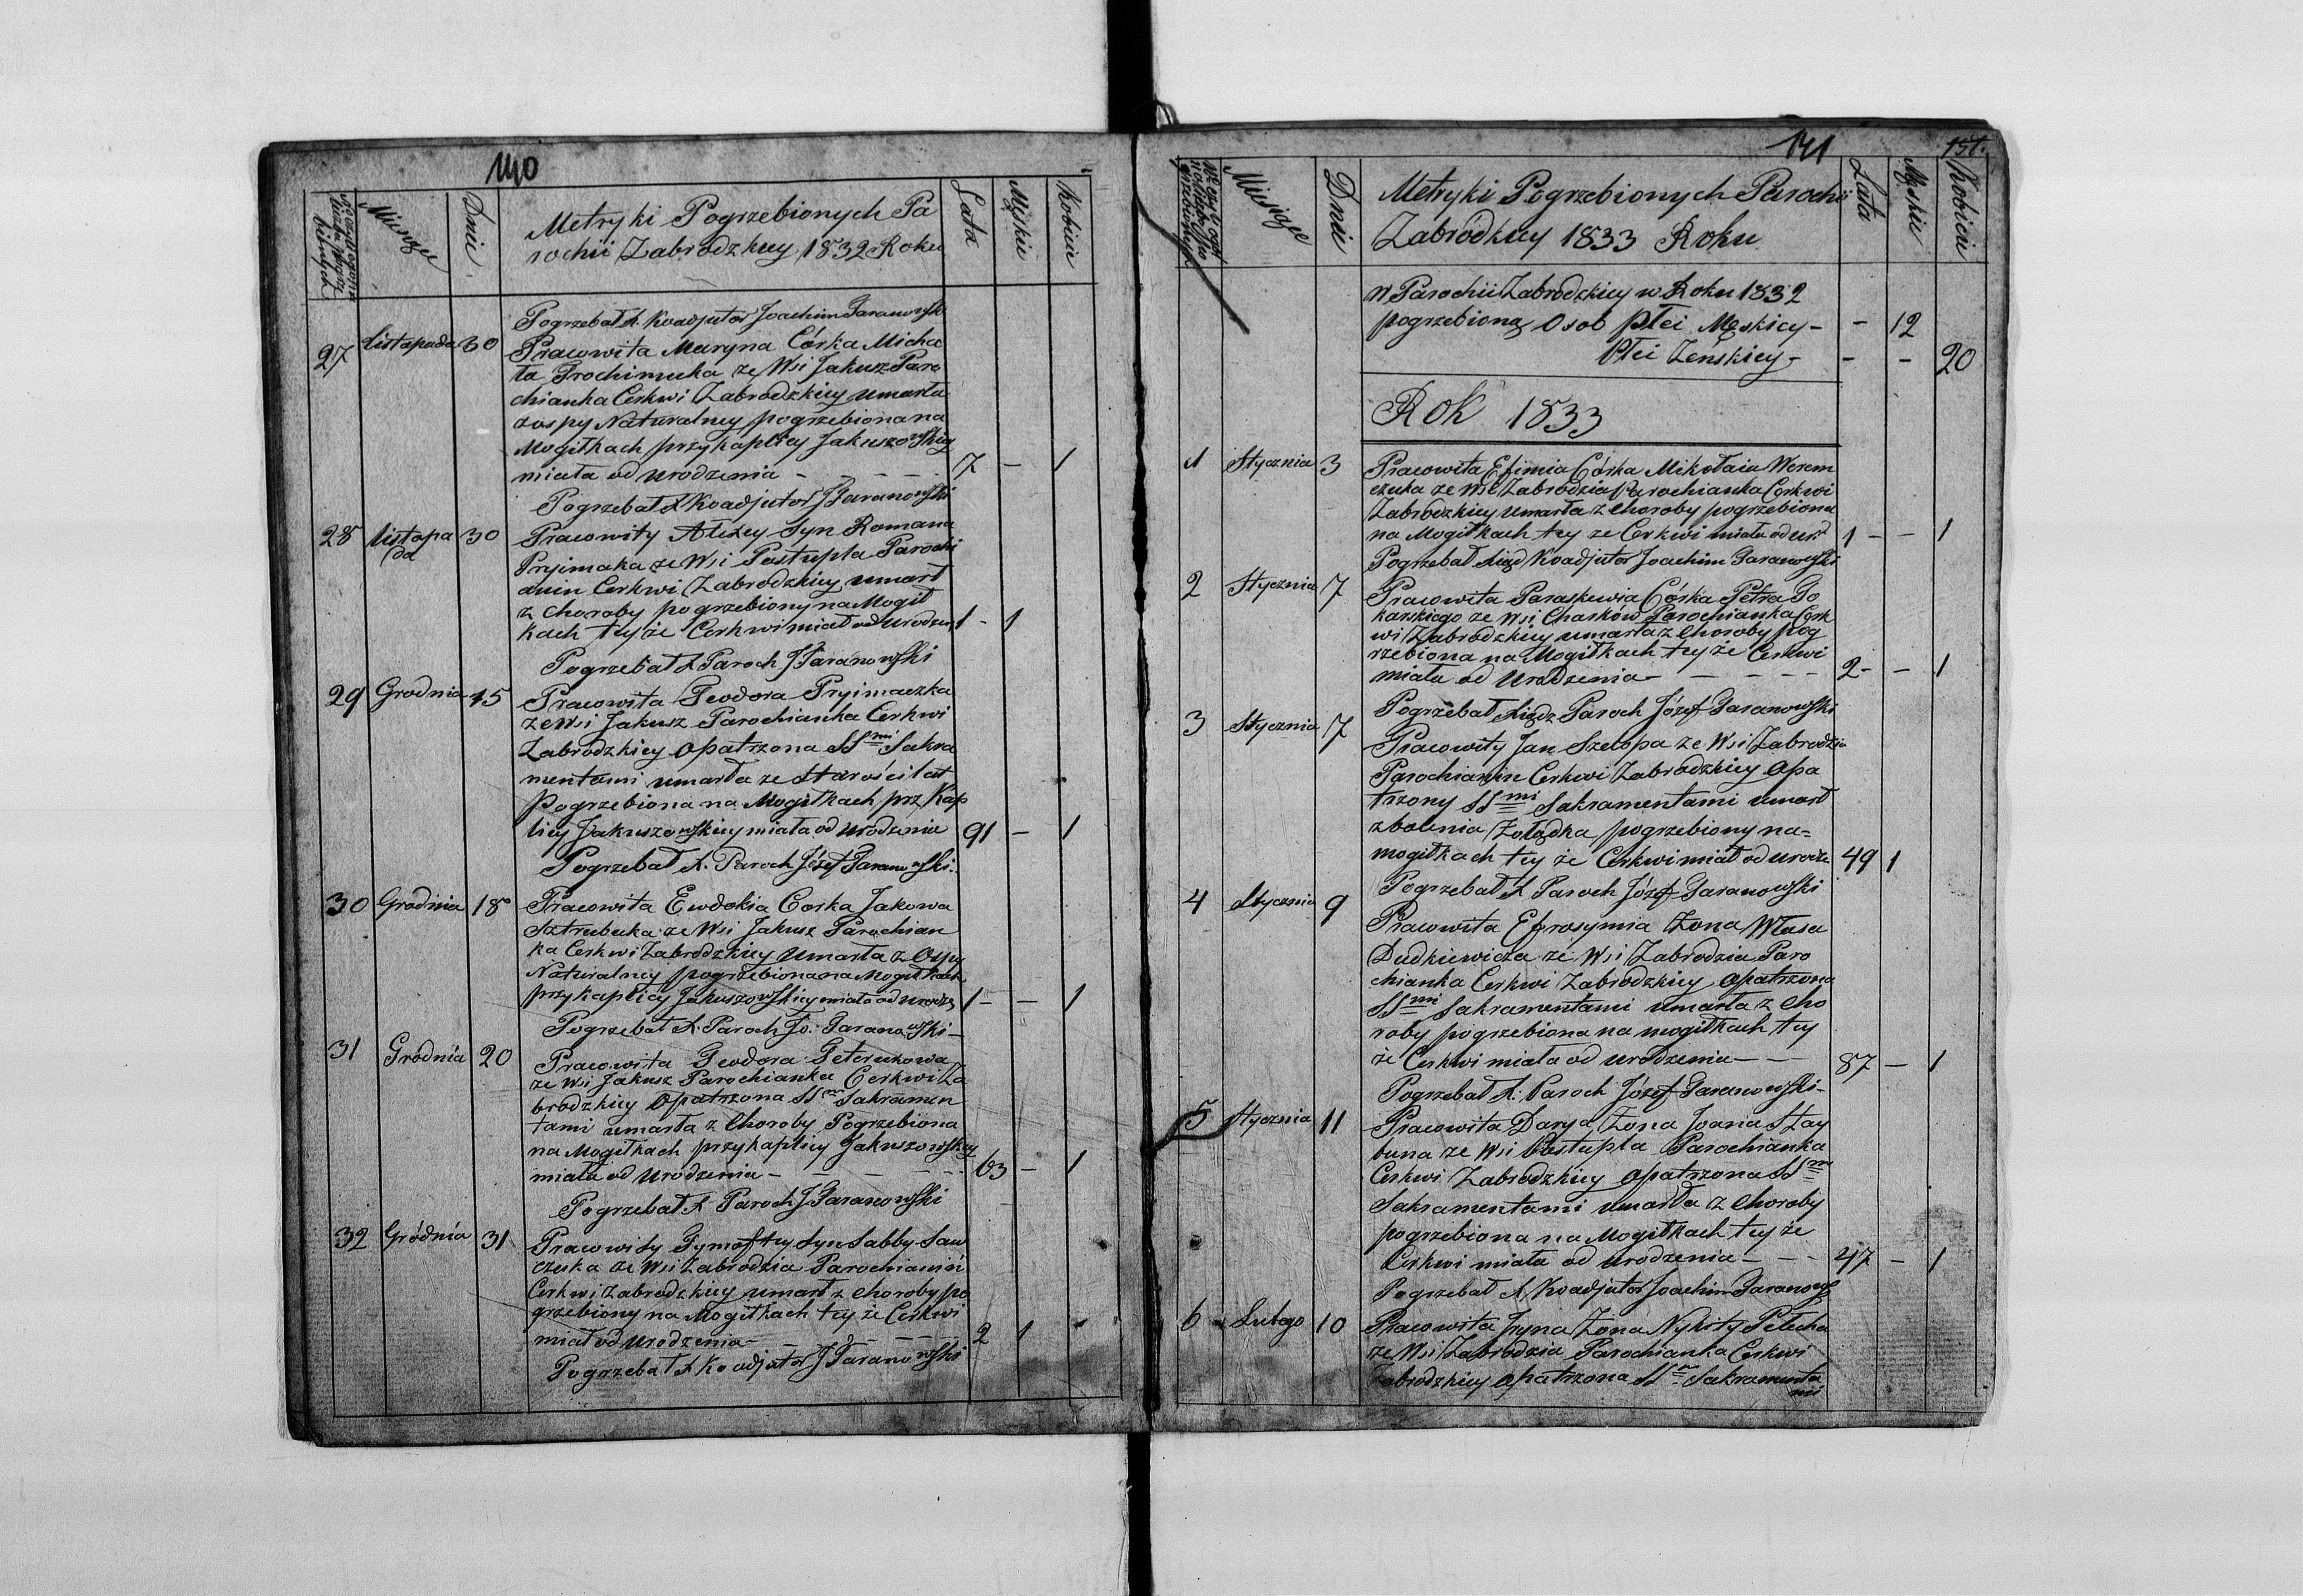 140
Miesiąc
Dnie
Metryki Pogrzebionych Pa
rochii Zabrodzkiey 1832 Roku
Lata
Męskie
Kobicie
Pogrzebał X. Koadjutor Joachim Taranowski
27 Listopada 30 Pracowita Maryna Córka Micha
ła Trochimuka ze Wsi Jakusz Paro
chianka Cerkwi Zabrodzkiey umarła
z ospy Naturalney pogrzebiona na
Mogiłkach przy kaplicy Jakuszowskiey
miała od urodzenia - - - - 7 - 1
Pogrzebał X Koadjutor J Taranowski
28 Listopa 30 Pracowity Alexey Syn Romana
da
Pryimaka ze Wsi Postupla Parochi
anin Cerkwi Zabrodzkiey umarł
z choroby pogrzebiony na Mogił
kach tey że Cerkwi miał od urodzen 1 - 1
Pogrzebał X Paroch J Taranowski
29 Grodnia 15 Pracowita Teodora Pryimaczka
ze Wsi Jakusz Parochianka Cerkwi
Zabrodzkiey opatrzona SSmi Sakra
mentami umarła ze starości lat
Pogrzebiona na Mogiłkach prz Kap
licy Jakuszowskiey miała od urodzenia 91 - 1
Pogrzebał X. Paroch Józef Taranowski.
30 Grodnia 18 Pracowita Ewdokia Corka Jakowa
Sztrubuka ze Wsi Jakusz Parochian
ka Cerkwi Zabrodzkiey umarła z Ospy
Naturalney pogrzebiona na Mogiłkach
przy kaplicy Jakuszowskiey miała od urodze 1 - - 1
Pogrzebał X. Paroch Jo: Taranowski -
31 Grodnia 20 Pracowita Teodora Peterukowa
ze Wsi Jakusz Parochianka Cerkwi Za
brodzkiey opatrzona SSmi Sakramen
tami umarła z Choroby Pogrzebiona
na Mogiłkach przy kaplicy Jakuszowskiey
miała od urodzenia - - - - 63 - 1
Pogrzebał X Paroch J Taranowski
32 Gródnia 31 Pracowity Tymoftey Syn Sabby Saw
czuka ze Wsi Zabrodzia Parochianin
Cerkwi Zabrodzkiey umarł z choroby po
grzebiony na Mogiłkach tey że Cerkwi
miał od urodzenia - - - - 2 1
Pogrzebał X Koadjutor J Taranowski
141
151.
Miesiąc
Dnie
Metryki Pogrzebionych Parochii
Zabródzkiey 1833 Roku
Lata
Męskie
Kobicie
W Parochii Zabrodzkiey w Roku 1832
pogrzebiono Osob płei Męskiey - - 12
Płei Zeńskiey - - - 20
Rok 1833
1 Stycznia 3 Pracowita Efimia Córka Mikołaia Werem
czuka ze Wsi Zabrodzia Parochianka Cerkwi
Zabrodzkiey umarła z choroby pogrzebiona
na Mogiłkach tey ze Cerkwi miała od ur. 1 - - 1
Pogrzebał Xiądz Koadjutor Joachim Taranowski
2 Stycznia 7 Pracowita Paraskewia Córka Petra To
karskiego ze Wsi Charków Parochianka Cerk
wi Zabrodzkiey umarła z choroby pog
rzebiona na Mogiłkach tey że Cerkwi
miała od Urodzenia - - - - 2 - - 1
Pogrzebał Xiądz Paroch Józef Taranowski
3 Stycznia 7 Pracowity Jan Szelopa ze Wsi Zabrodzia
Parochianin Cerkwi Zabrodzkiey opa
trzony SSmi Sakramentami umarł
z bolenia Zołądka pogrzebiony na=
mogiłkach tey że Cerkwi miał od urodze 49 1
Pogrzebał X Paroch Józef Taranowski
4 Stycznia 9 Pracowita Efrosymia Zona Własa
Dudkiewicza ze Wsi Zabrodzia Paro
chianka Cerkwi Zabrodzkiey opatrzona
SSmi Sakramentami umarła z cho
roby pogrzebiona na mogiłkach tey
że Cerkwi miała od urodzenia - - 87 - 1
Pogrzebał X: Paroch Józef Taranowski -
5 Stycznia 11 Pracowita Darya Zona Joana Stay
buna ze Wsi Postupla Parochianka
Cerkwi Zabrodzkiey opatrzona SSmi
Sakramentami umarła z choroby
pogrzebiona na Mogiłkach tey że
Cerkwi miała od urodzenia - - - 47 - 1
Pogrzebał X Koadjutor Joachim Taranows
6 Lutego 10 Pracowita Jryna Zona Nykity Pełecha
ze Wsi Zabrodzia Parochianka Cerkwi
Zabrodzkiey opatrzona SSmi Sakramenta
mi